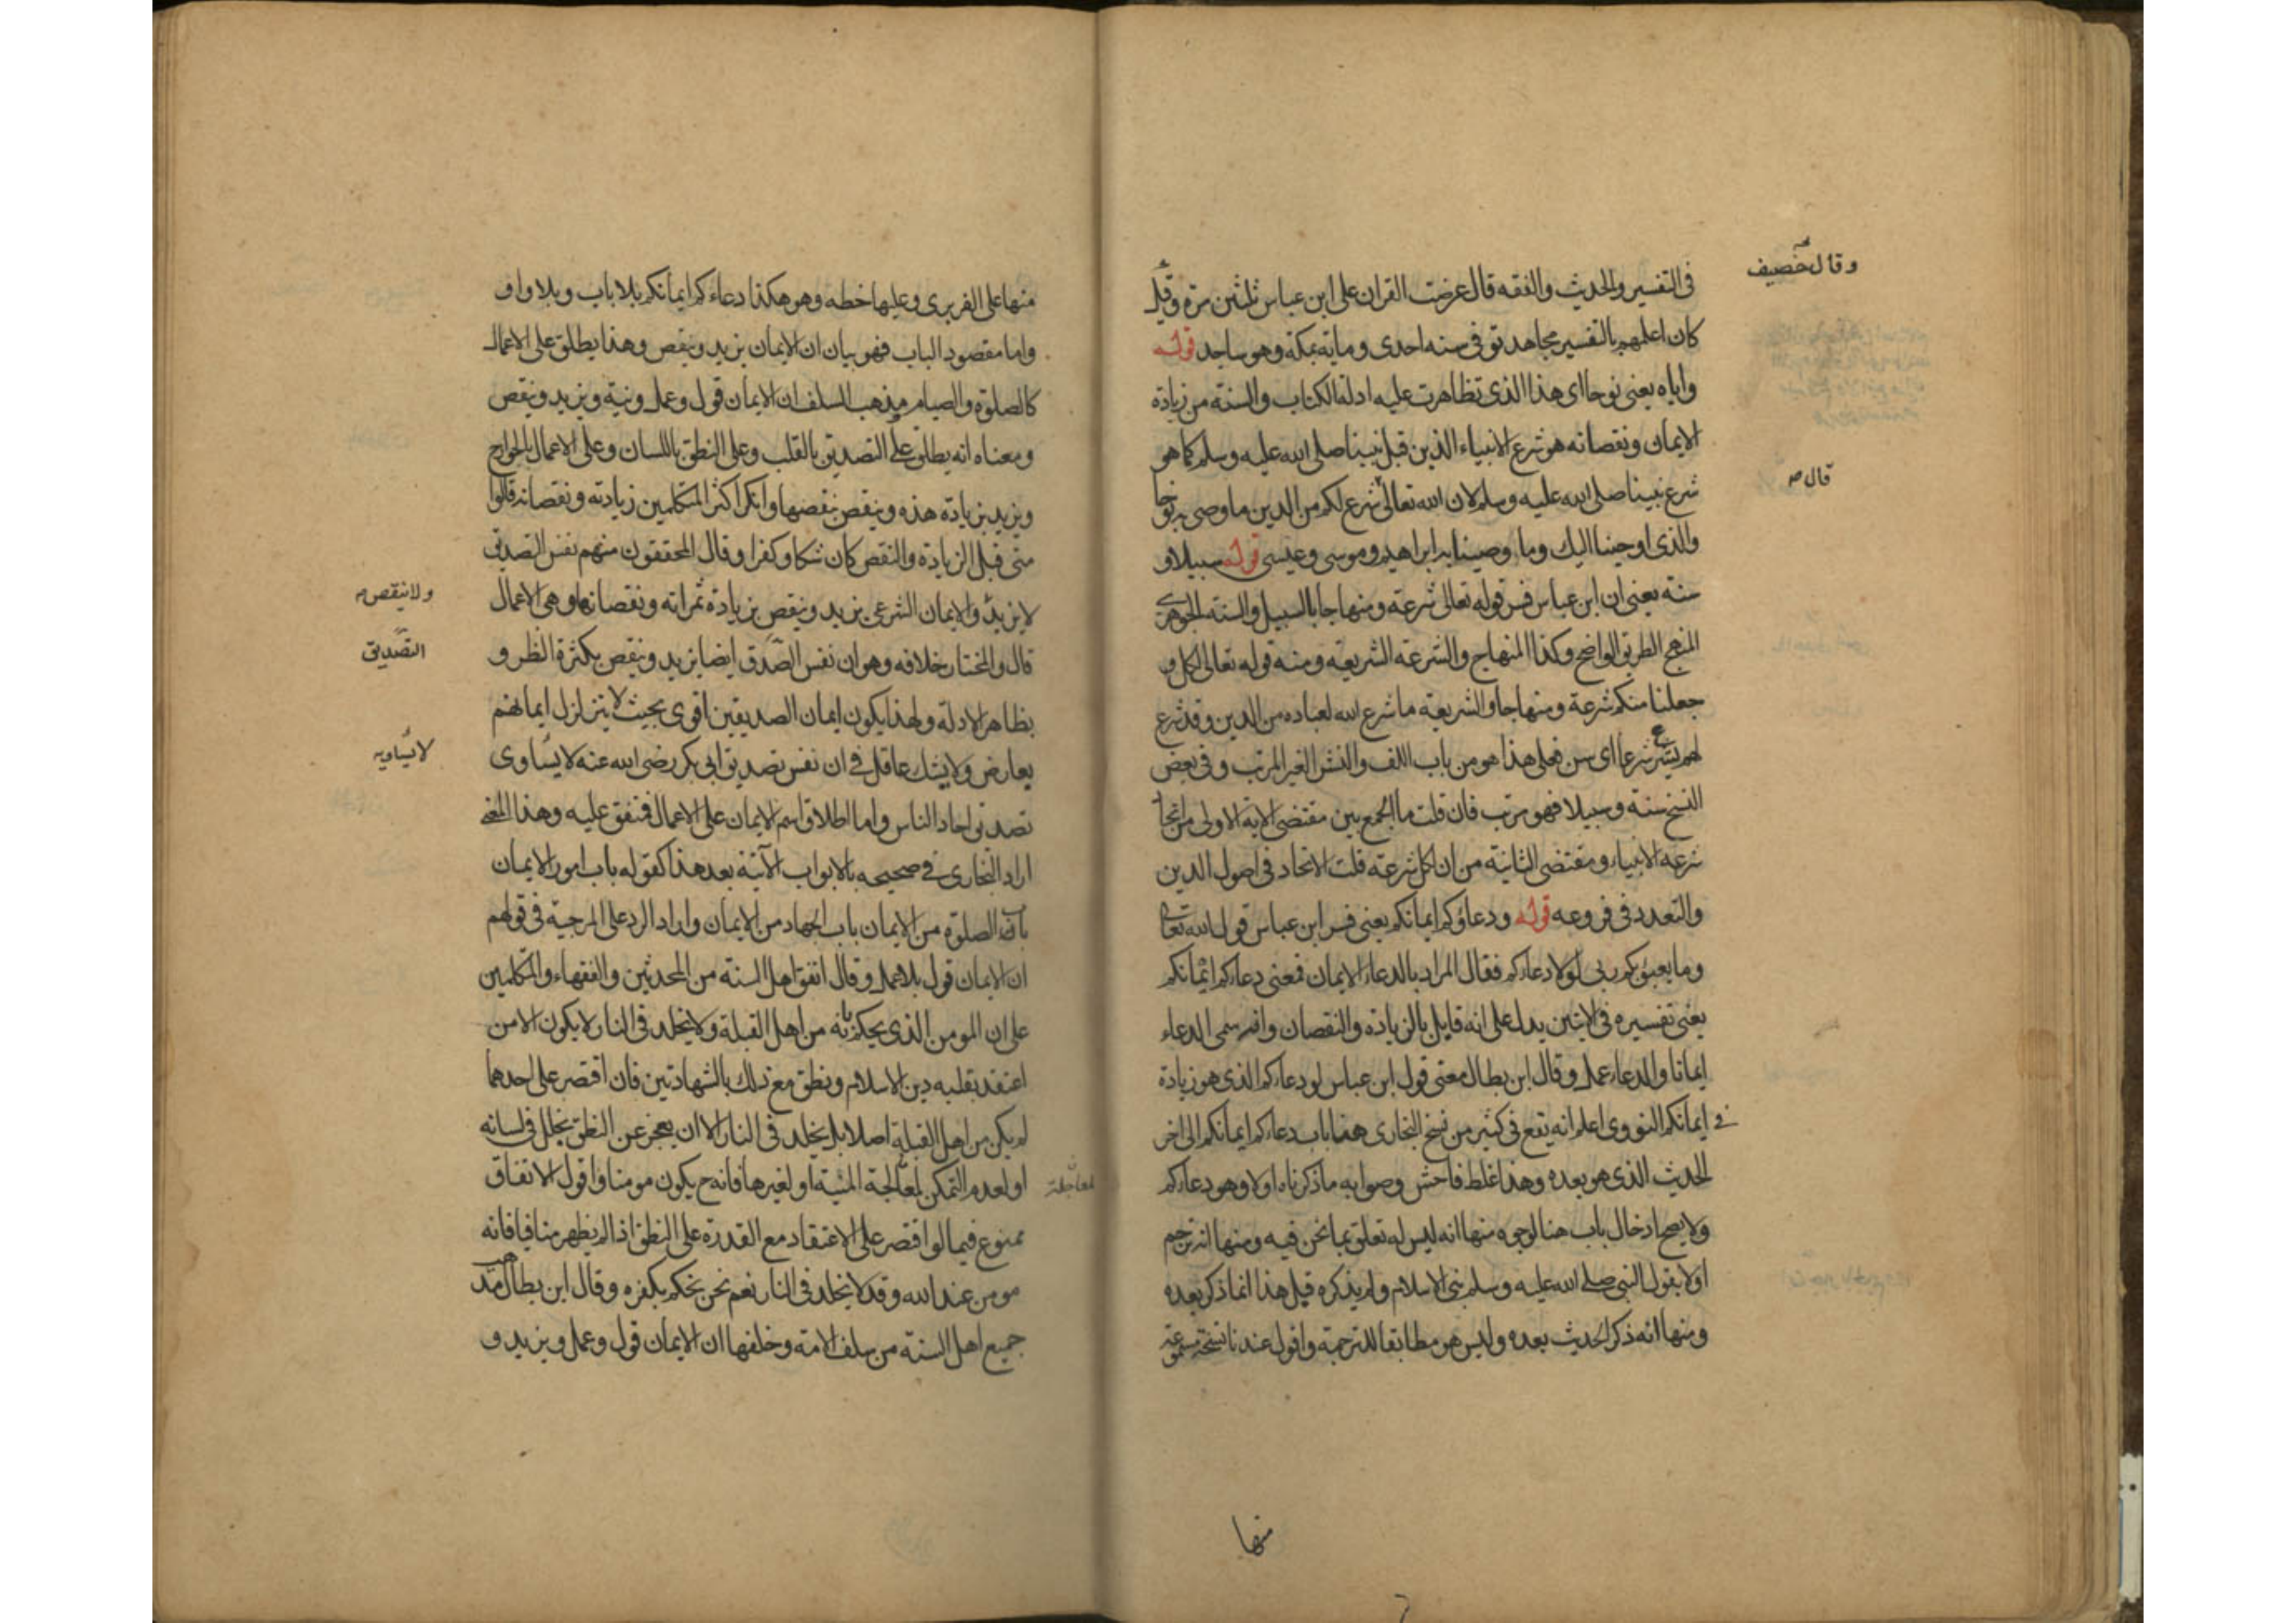 وقال خصيف
فى التفسير والحديث والفقه قال عرضت القران على ابن عباس ثلثين مرة وقيل
كان اعلمهم بالتفسير مجاهد توفى سنه احدى ومايه بمكة وهو ساجد قوله
واياه يعنى نوحا اى هذا الذى تظاهرت عليه ادلة الكتاب والسنة من زيادة
الايمان ونقصانه هو شرع الانبياء الذين قبل نبينا صلى الله عليه وسلم كما هو
قال
شرع نبينا صلى الله عليه وسلم لان الله تعالى شرع لكم من الدين ما وصى به نوحا
والذى اوحينا اليك وما وصينا به ابراهيم وموسى وعيسى قوله سبيلا و
سنة يعنى ان ابن عباس فسر قوله تعالى شرعة ومنهاجا بالسبيل والسنة الجوهرى
المنهج الطريق الواضح وكذا المنهاج والشرعة الشريعة ومنه قوله تعالى لكل
جعلنا منكم شرعة ومنهاجا والشريعة ما شرع الله لعباده من الدين وقد شرع
لهم يشرع شرعا اى سن فعلى هذا هو من باب اللف والنشر الغير المرتب وفى بعض
النسخ سنة وسبيلا فهو مرتب فان قلت ما الجمع بين مقتضى الاية الاولى من اتحاد
شرعة الانبياء ومقتضى الثانية من ان لكل شرعة قلت الاتحاد فى اصول الدين
والتعدد فى فروعه قوله ودعاؤكم ايمانكم يعنى فسر ابن عباس قول الله تعالى
وما يعبؤكم ربى لولا دعاءكم فقال المراد بالدعاء الايمان فمعنى دعاءكم ايمانكم
يعنى تفسيره فى الايتين يدل على انه قايل بالزيادة والنقصان وانه سمى الدعاء
ايمانا والدعاء عمل وقال ابن بطال معنى قول ابن عباس لو دعاءكم الذى هو زيادة
فى ايمانكم النووى اعلم انه يقع فى كثير من نسخ البخارى هنا باب دعاءكم ايمانكم الى اخر
الحديث الذى هو بعده وهذا غلط فاحش وصوابه ما ذكرناه اولا وهو دعاءكم
ولا يصح ادخال باب هنا لوجوه منها انه ليس له تعلق بما نحن فيه ومنها انه ترجم
اولا بقول النبى صلى الله عليه وسلم بنى الاسلام ولم يذكره قبل هذا انما ذكر بعده
ومنها انه ذكر الحديث بعده وليس هو مطابقا للترجمة واقول عندنا نسخة مسموعة
منها
منها على الفربرى وعليها خطه وهو هكذا دعاءكم ايمانكم بلا باب وبلا واو
واما مقصود الباب فهو بيان ان الايمان يزيد وينقص وهذا يطلق على الاعمال
كالصلوة والصيام ومذهب السلف ان الايمان قول وعمل ونية ويزيد وينقص
ومعناه انه يطلق على التصديق بالقلب وعلى النطق باللسان وعلى الاعمال بالجوارح
ويزيد بزيادة هذه وينقص بنقصها وانكر اكثر المتكلمين زيادته ونقصانه قالوا
متى قبل الزيادة والنقص كان شكا وكفرا وقال المحققون منهم نفس التصديق
ولا ينقص
لا يزيد والايمان الشرعى يزيد وينقص بزيادة ثمراته ونقصانها وهى الاعمال
التصديق
قال والمختار خلافه وهو ان نفس الصدق ايضا يزيد وينقص بكثرة النظر و
بظاهر الادلة ولهذا يكون ايمان الصديقين اقوى بحيث لا يتزلزل ايمانهم
لا يساويه
يعارض ولا يشك عاقل فى ان نفس تصديق ابى بكر رضى الله عنه لا يساوى
تصديق احاد الناس واما اطلاق اسم الايمان على الاعمال فمتفق عليه وهذا المعنى
اراد البخارى فى صحيحه بالابواب الآتية بعد هذا كقوله باب امور الايمان
باب الصلوة من الايمان باب الجهاد من الايمان واراد الرد على المرجية فى قولهم
ان الايمان قول بلا عمل وقال اتفق اهل السنة من المحدثين والفقهاء والمتكلمين
على ان المومن الذى يحكم بانه من اهل القبلة ولا يخلد فى النار لا يكون الا من
اعتقد بقلبه دين الاسلام ونطق مع ذلك بالشهادتين فان اقتصر على احدهما
لم يكن من اهل القبلة اصلا بل يخلد فى النار الا ان يعجز عن النطق بخلل فى لسانه
لمعاجلة
او لعدم التمكن لمعالجة المنية او لغيرها فانه ح يكون مومنا واقول الاتفاق
ممنوع فيما لو اقتصر على الاعتقاد مع القدرة على النطق اذا لم يظهر منافيا فانه
مومن عند الله وقد لا يخلد فى النار نعم نحن نحكم بكفره وقال ابن بطال مذهب
جميع اهل السنة من سلف الامة وخلفها ان الايمان قول وعمل ويزيد و